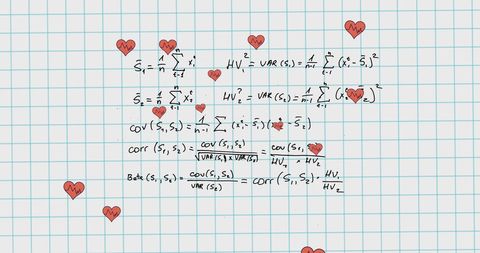 S̄₁ = 1/n Σⁿₜ₌₁ xᵗ₁ HV₁² = VAR(S₁) = 1/n-1 Σⁿₜ₌₁ (xᵗ₁ - S̄₁)²
S̄₂ = 1/n Σⁿₜ₌₁ xᵗ₂ HV₂² = VAR(S₂) = 1/n-1 Σⁿₜ₌₁ (xᵗ₂ - S̄₂)²
cov(S₁,S₂) = 1/n-1 Σ (xᵗ₁ - S̄₁)( - S̄₂)
corr(S₁,S₂) = cov(S₁,S₂)/√VAR(S₁) x VAR(S₂) = cov(S₁, S₂)/HV₁ * HV₂
Beta(S₁,S₂) = cov(S₁,S₂)/VAR(S₂) = corr(S₁,S₂) · HV₁/HV₂